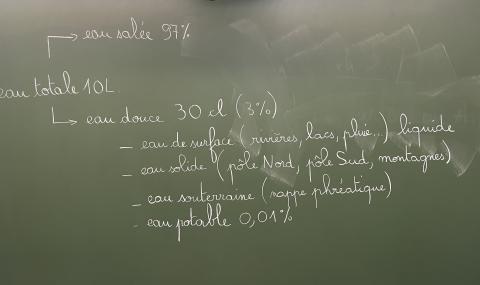 eau salée 97%
eau totale 10L
eau douce 30 cl (3%)
- eau de surface (rivières, lacs, pluie...) liquide
- eau solide (pôle Nord, pôle Sud, montagnes)
- eau souterraine (nappe phréatique)
- eau potable 0,01%